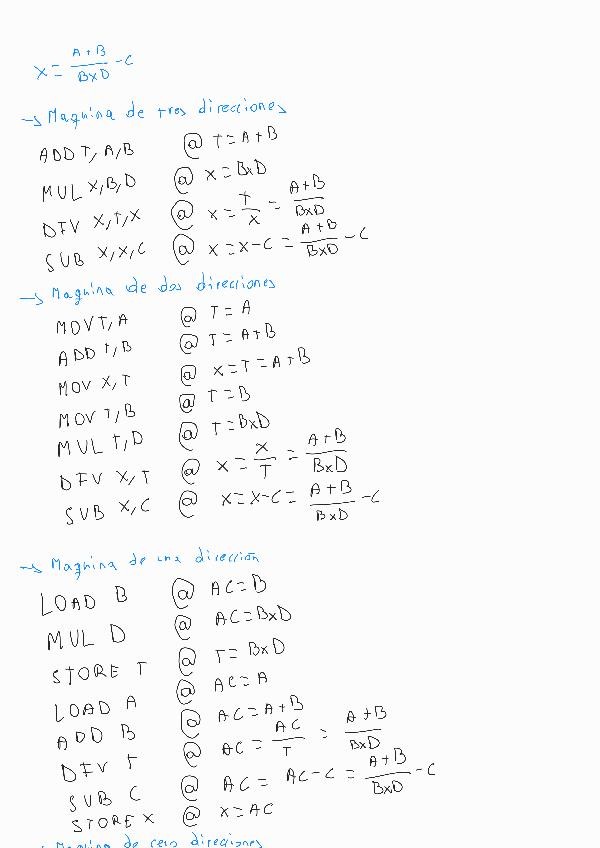 X = (A+B)/(B×D) - C
→ Maquina de tres direcciones
ADD T, A, B @ T = A+B
MUL X, B, D @ X = B×D
DIV X, T, X @ X = T/X = (A+B)/(B×D)
SUB X, X, C @ X = X-C = (A+B)/(B×D) - C
→ Maquina de dos direcciones
MOV T, A @ T = A
ADD T, B @ T = A+B
MOV X, T @ X = T = A+B
MOV T, B @ T = B
MUL T, D @ T = B×D
DIV X, T @ X = X/T = (A+B)/(B×D)
SUB X, C @ X = X-C = (A+B)/(B×D) - C
→ Maquina de una dirección
LOAD B @ AC = B
MUL D @ AC = B×D
STORE T @ T = B×D
LOAD A @ AC = A
ADD B @ AC = A+B
DIV T @ AC = AC/T = (A+B)/(B×D)
SUB C @ AC = AC-C = (A+B)/(B×D) - C
STORE X @ X = AC
→ Maquina de cero direciones